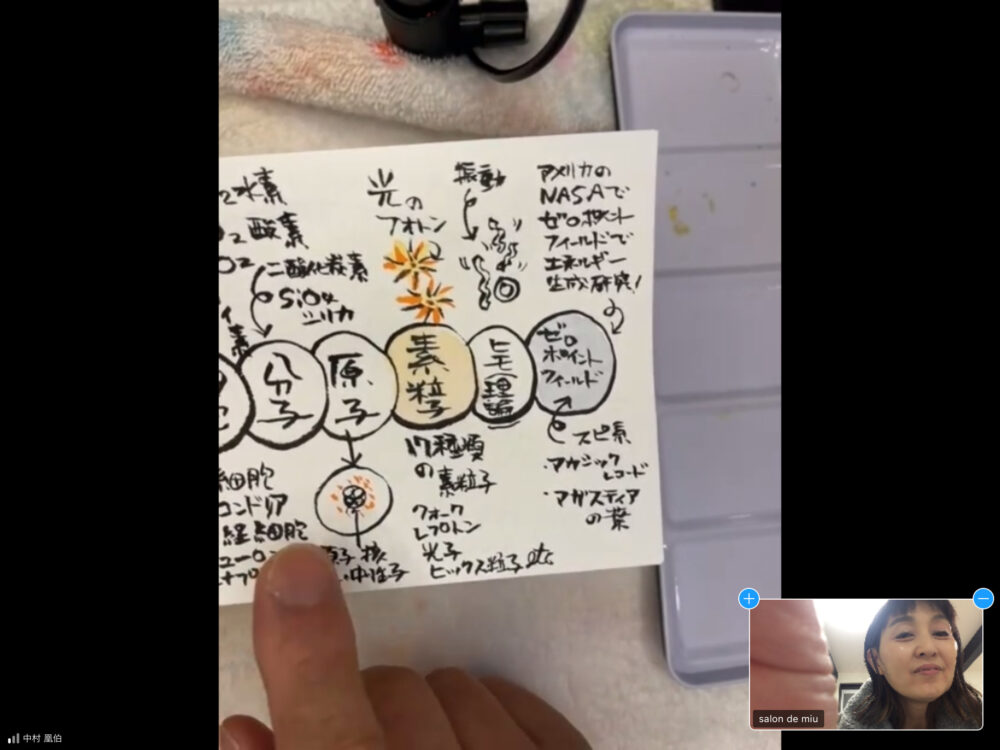 水素
酸素
二酸化炭素
SiO4
シリカ
光の
フォトン
振動
アメリカの
NASAで
ゼロポイント
フィールドで
エネルギー
生成研究!
分子
原子
素粒子
ヒモ(理論)
ゼロ
ポイント
フィールド
細胞
コンドリア
経細胞
ューロ
原子核
中性子
17種類
の
素粒子
クォーク
レプトン
光子
ヒックス粒子 etc
スピ系
・アカシック
レコード
・アガスティア
の葉
salon de miu
中村 凰伯